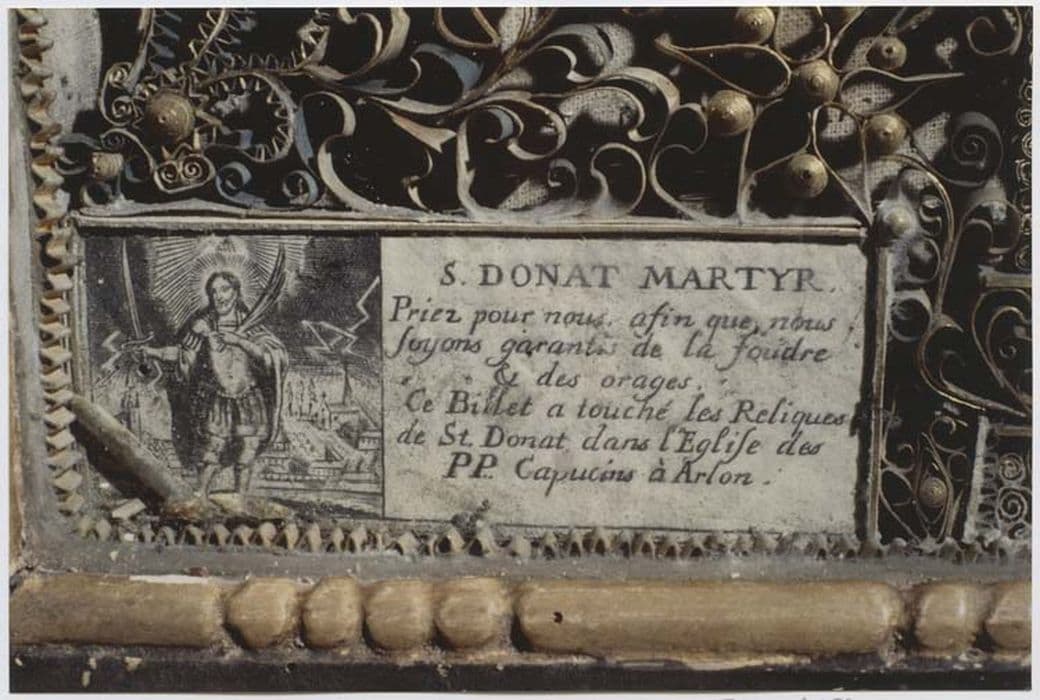 S. DONAT MARTYR.
Priez pour nous. afin que nous
ſoyons garantis de la foudre
& des orages.
Ce Billet a touché les Reliques
de St. Donat dans l'Egliſe des
PP. Capucins à Arlon.